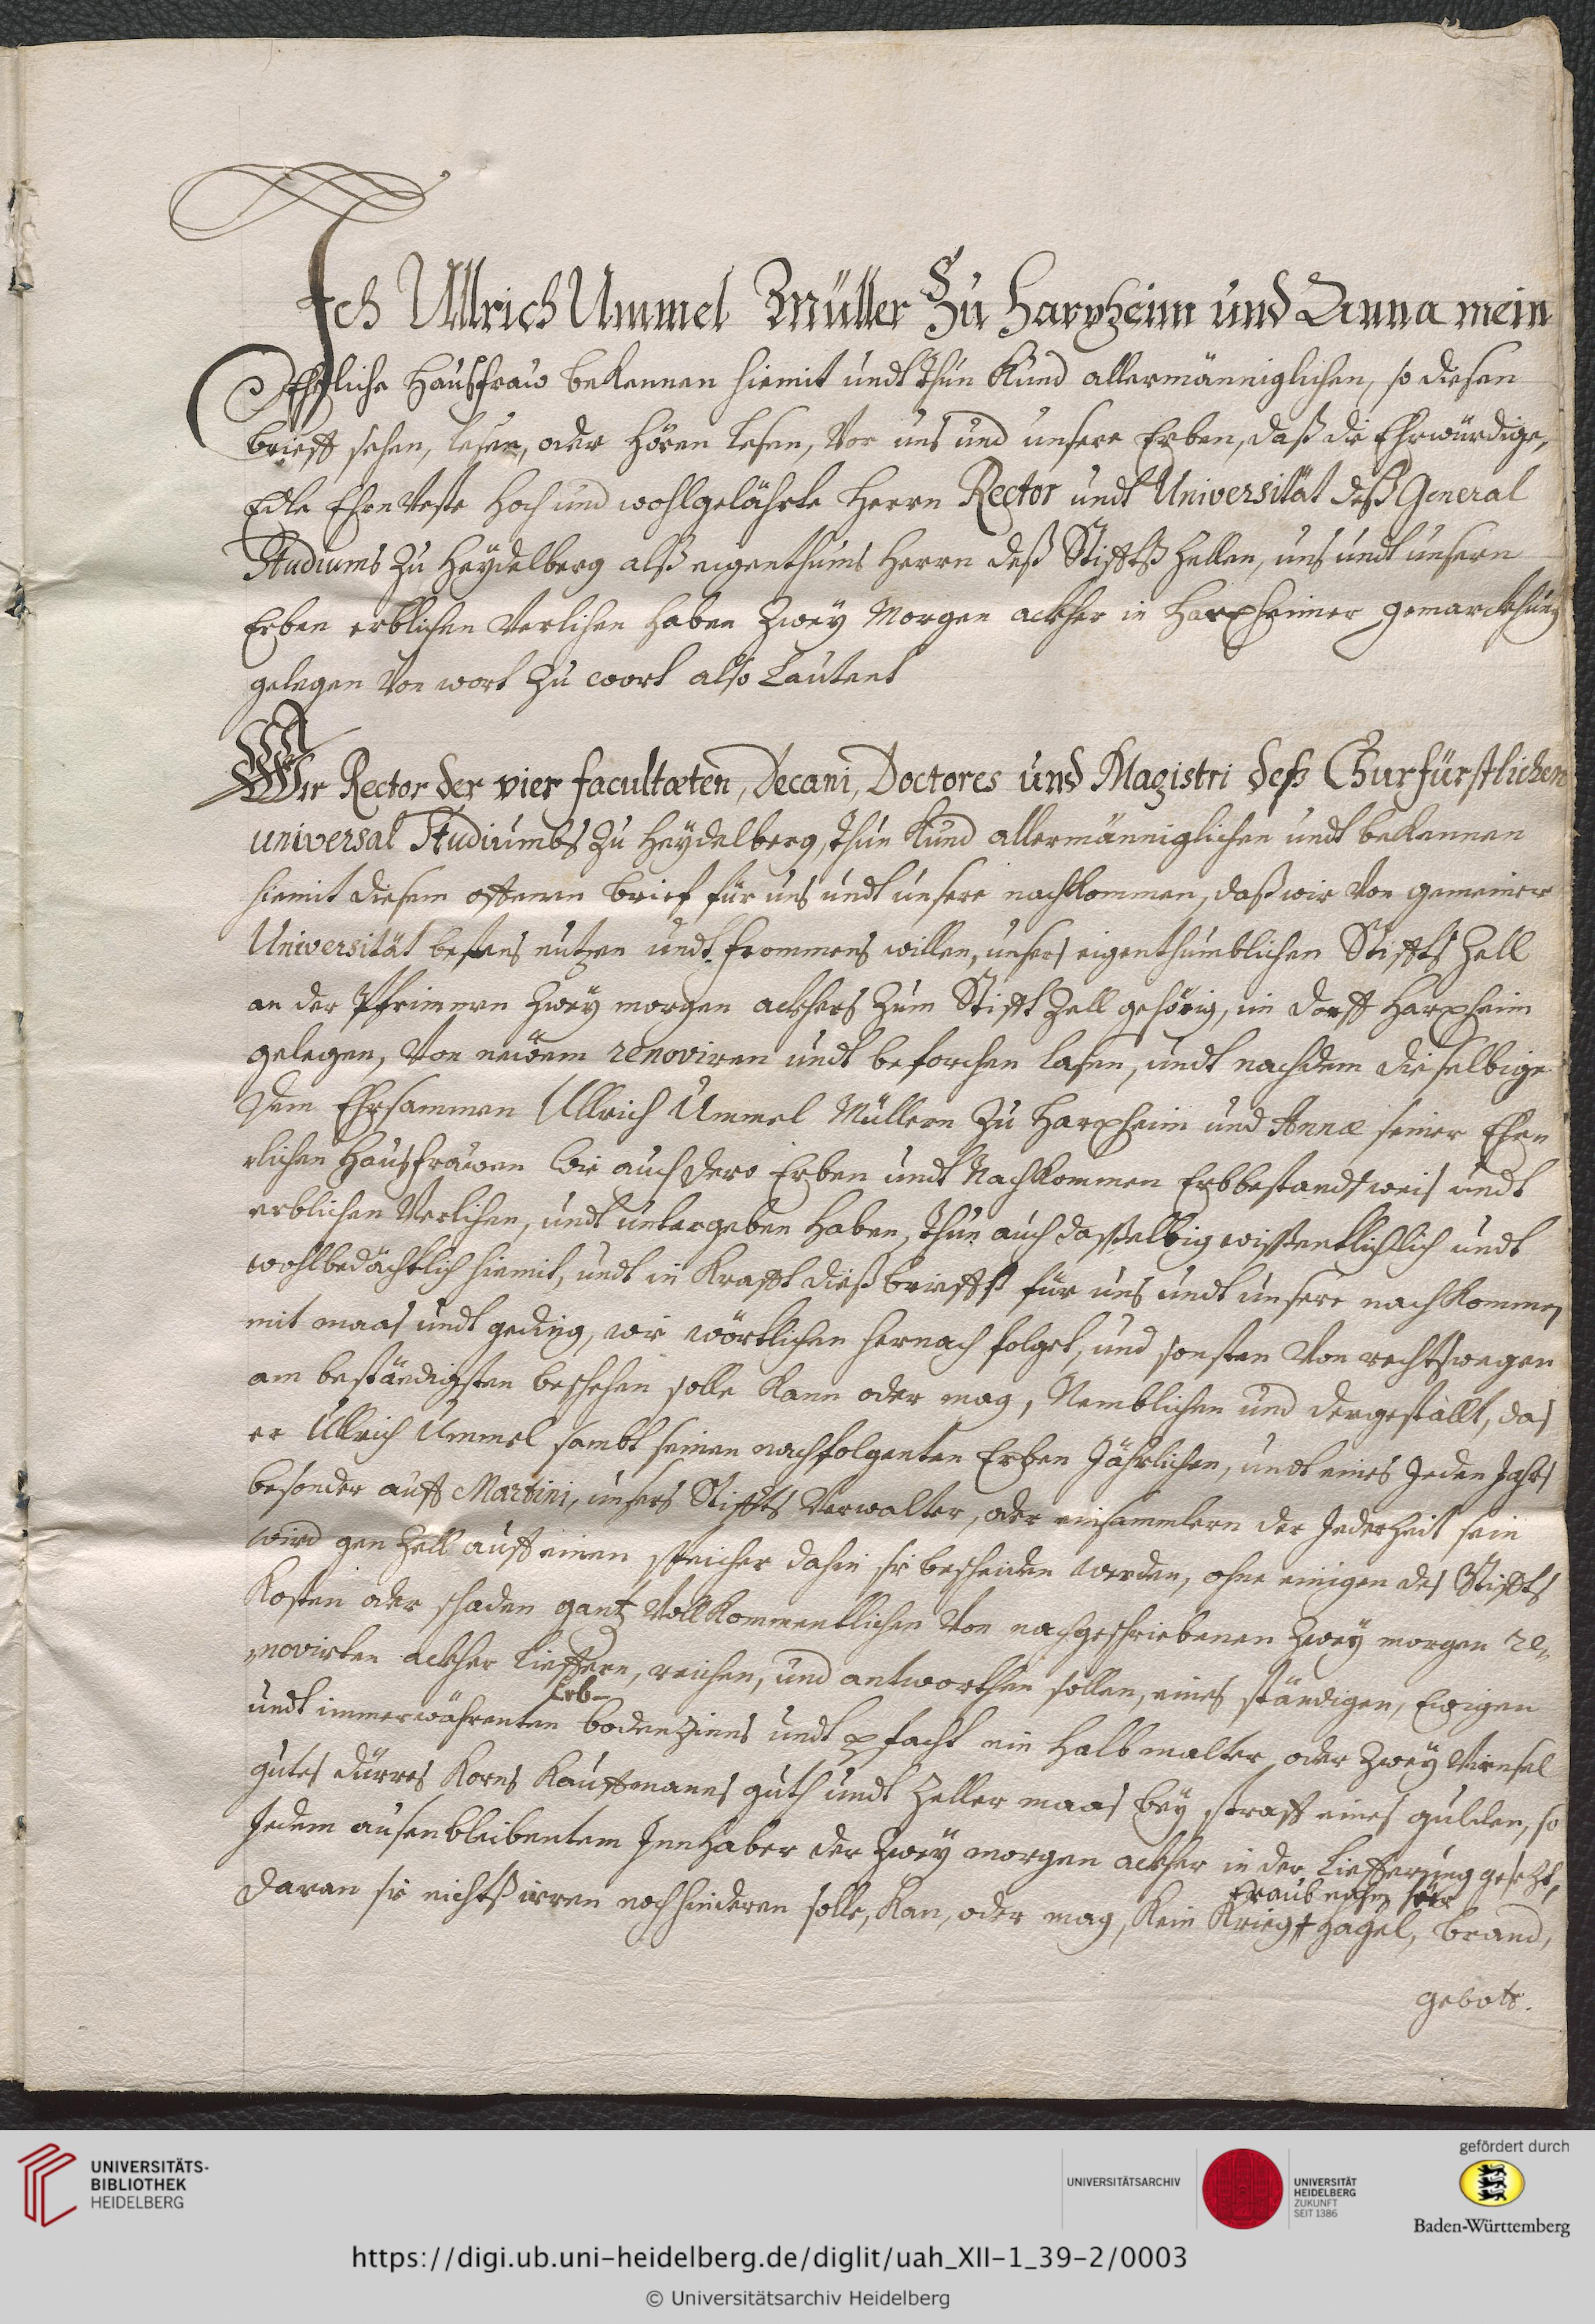 Ich Ullrich Ummel Müller Zu Harxheim und Anna mein
Eheliche Haußfraw bekennen hiemit undt thun Kund allermänniglichen, so diesen
brieff sehen, lesen, oder hören lesen, Vor uns und unsere Erben, daß die Ehrwürdige,
Edle Ehrnveste Hoch und wohlgelährte Herrn Rector undt Universität deß General
Studiums Zu Heÿdelberg alß eigenthums Herrn deß Stiffts Zellen, uns undt unsern
Erben erblichen Verlihen haben Zweÿ Morgen ackher in Harxheimer gemarckhung
gelegen Von wort Zu wort also Lautent
Wir Rector der vier facultæten, Decani, Doctores und Magistri deß Churfürstlichen
universal Studiumbs Zu Heÿdelberg, thun Kund allermänniglichen undt bekennen
hiemit diesem offenen brief für uns undt unsere nachkommen, daß wir Von gemeiner
Universität bestens nutzen undt frommens willen, unsers eigenthumblichen Stiffts Zell
an der Pfrimmen Zweÿ morgen ackhers Zum Stifft Zell gehörig, im dorff Harxheim
gelegen, Von neüem renoviren undt beforchen lasen, undt nachdem dieselbige
dem Ehrsammen Ullrich Ummel Müllern Zu Harxheim und Annæ seiner Ehe-
lichen Haußfrauwen wie auch dero Erben undt Nachkommen Erbbestandsweis undt
erblichen Verlihen, undt untergeben haben, thun auch dasselbig wissentlichlich undt
wohlbedächtlich hiemit, undt in Krafft dieß brieffß für uns undt unsere nachkommen
mit maas undt geding, wie wörtlichen hernach folget, und sonsten Von rechtswegen
am beständigsten beschehen solle kann oder mag, Nemblichen und dergestallt, das
er Ullrich Ummel sambt seinen nachfolgenten Erben Jährlichen, undt eines Jeden Jahrs
besonder auff Martini, unsers Stiffts Verwalter, oder einsammlern der Jederzeit sein
wird gen Zell auff einen speicher dahin sie bescheiden werden, ohne einigen des Stiffts
Kosten oder schaden gantz Vollkommentlichen Von nachgeschriebenen Zweÿ morgen re-
novirten ackher lieffern, reichen, und antworthen sollen, eines ständigen, Ewigen
Erb-
undt immerwährenten bodenzinns undt pfacht ein halb malter, oder Zweÿ Virnsel
gutes dürres Korns Kauffmanns guth undt Zeller maas beÿ straff eines gulden, so
Jedem ausenbleibentem Innhaber der Zweÿ morgen ackher in der Liefferung gesetzt,
raub
daran sie nichtß irren noch hinderen solle, kan, oder mag, kein Krieg Hagel, brand,
gebots.
UNIVERSITÄTS-
BIBLIOTHEK
HEIDELBERG
UNIVERSITÄTSARCHIV
UNIVERSITÄT
HEIDELBERG
ZUKUNFT
SEIT 1386
gefördert durch
Baden-Württemberg
https://digi.ub.uni-heidelberg.de/diglit/uah_XII-1_39-2/0003
© Universitätsarchiv Heidelberg